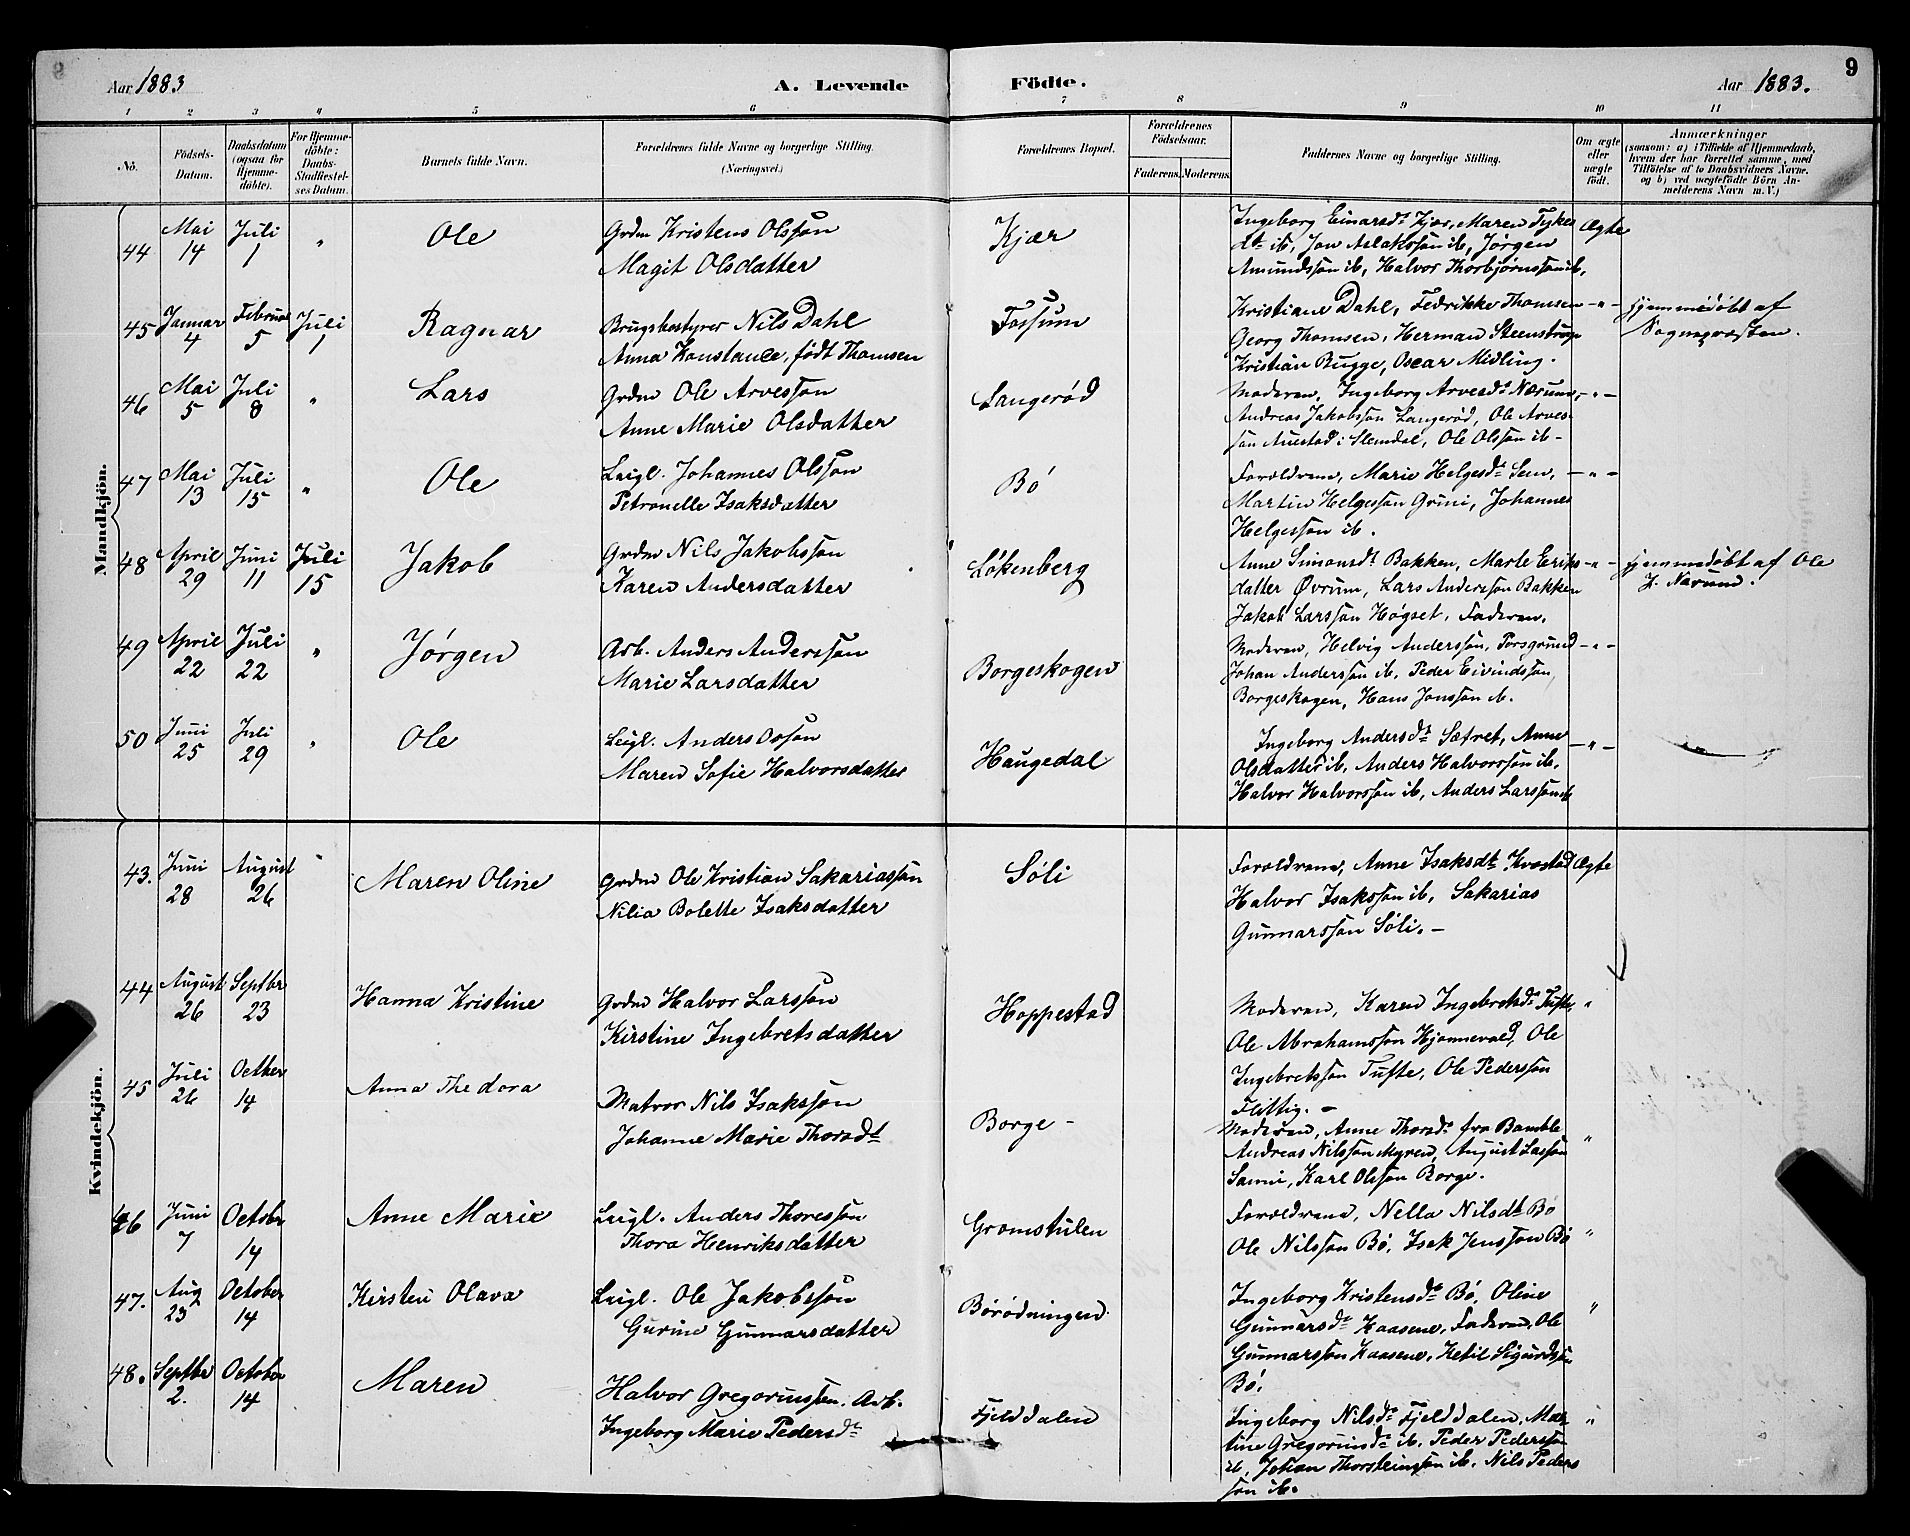 9
Aar 1883
A. Levende Födte.
Aar 1883.
1 2 3 4 5 6 7 8 9 10 11
No.
Födsels-Datum.
Daabsdatum (ogsaa for Hjemme-döbte).
For Hjemme-döbte: Daabs-Stadfæstel-ses Datum.
Barnets fulde Navn.
Forældrenes fulde Navne og borgerlige Stilling.
(Næringsvei.)
Forældrenes Bopæl.
Forældrenes Födselsaar.
Faderens. Moderens.
Faddernes Navne og borgerlige Stilling.
Om ægte eller uægte födt.
Anmærkninger
(saasom: a) i Tilfælde af Hjemmedaab, hvem der har forrettet samme, med Tilföielse af to Daabsvidners Navne, og b) ved uægtefödte Börn An-melderens Navn m. V.)
Mandkjön.
44 Mai 14 Juli 1 " Ole
Grdm Kristens Olsson
Magit Olsdatter
Kjær
Ingeborg Einarsdt Kjær, Maren Tykes
dtr ib, Jon Aslaksson ib, Jørgen
Amundsson ib, Halvor Thorbjørnsson ib,
Ægte
45 Januar 4 Februar 5 Juli 1 Ragnar
Brugsbestyrer Nils Dahl
Anna Konstance, født Thomsen
Fossum
Kristiane Dahl, Fedrikke Thomsen
Georg Thomsen, Herman Steenstrup
Kristian Bugge, Oscar Midling.
- " -
Hjemmedøbt af
Sognepræsten.
46 Mai 5 Juli 8 " Lars
Grdm Ole Arvesson
Anne Marie Olsdatter
Langerød
Moderen, Ingeborg Arvesdt Nærum,
Andreas Jakobsson Langerød, Ole Arves-
søn Auestad i Slemdal, Ole Olsson ib -
- " -
47 Mai 13 Juli 15 " Ole
Leigl. Johannes Olsson
Petronelle Isaksdatter
Bø
Forældrene, Marie Helgesdt Sem,
Martin Helgesson Grini, Johannes
Helgesson ib.
- " -
48 April 29 Juni 11 Juli 15 Jakob
Grdm Nils Jakobsson
Karen Andersdatter
Løkenberg
Anne Simonsdt Bakken, Marte Eriks
datter Øvrum, Lars Andersson Bakken
Jakob Larsson Høgset, Faderen,
- " -
Hjemmedøbt af Ole
49 April 22 Juli 22 " Jørgen
Arb. Anders Andersson
Marie Larsdatter
Borgeskogen
Moderen, Helvig Andersson, Porsgrund
Johan Andersson ib, Peder Eivindsson,
Borgeskogen, Hans Jonsson ib.
- " -
50 Juni 25 Juli 29 " Ole
Leigl. Anders Osson
Maren Sofie Halvorsdatter
Haugedal
Ingeborg Andersdt Sætret, Anne
Olsdatter ib, Anders Halvorsson ib,
Halvor Halvorsson ib, Anders Larsson ib
- " -
Kvindekjön.
43. Juni 28 August 26 " Maren Oline
Grdm Ole Kristian Sakariasson
Nilia Bolette Isaksdatter
Søli
Forældrene, Anne Isaksdt Kvestad
Halvor Isaksson ib, Sakarias
Gunnarsson Søli. -
Ægte
44 August 26 Septbr 23 Hanna Kristine
Grdm Halvor Larsson
Kirstine Ingebretsdatter
Hoppestad
Moderen, Karen Ingebretsdt Tufte,
Ole Abrahamsson Hjonnevald, Ole
Ingebretsson Tufte, Ole Pedersson
Flittig. -
"
45 Juli 26 Octber 14 Anna Thedora
Matros Nils Isaksson
Johanne Marie Thorsdt
Borge -
Moderen, Anne Thorsdt fra Bamble
Andreas Nilsson Myren, August Lasson
Sanni, Karl Olsson Borge.
"
46 Juni 7 Octobr 14 Anne Marie
Leigl. Anders Thoresson
Thora Henriksdatter
Gromstulen
Forældrene, Nella Nilsdt Bø
Ole Nilsson Bø, Isak Jensson Bø
"
47. Aug 23 October 14 Kirsten Olava
Leigl. Ole Jakobsson
Gurine Gunnarsdatter
Børødningen
Ingeborg Kristensdt Bø, Oline
Gunnarsdt Kaasene, Faderen, Ole
Gunnarsson Kaasene, Ketil Sigurdsson
Bø.
"
48. Septbr 2. October 14 Maren
Halvor Gregoriussen. Arb.
Ingeborg Marie Pedersdt
Fjelddalen
Ingeborg Nilsdt Fjelddalen, Mar-
tine Gregoriusdt ib. Peder Pedersson
ib, Johan Thorsteinsson ib. Nils Peders
søn ib.
"